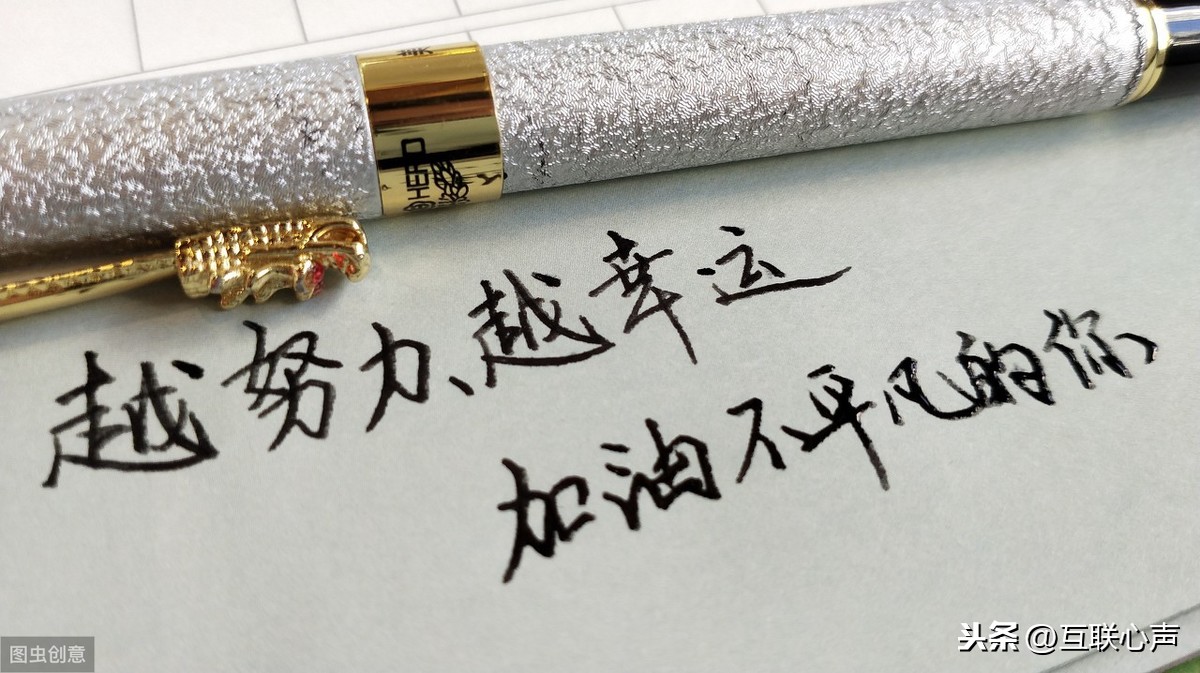 HERO
越努力、越幸运
加油不平凡的你、
图虫创意
头条 @互联心声